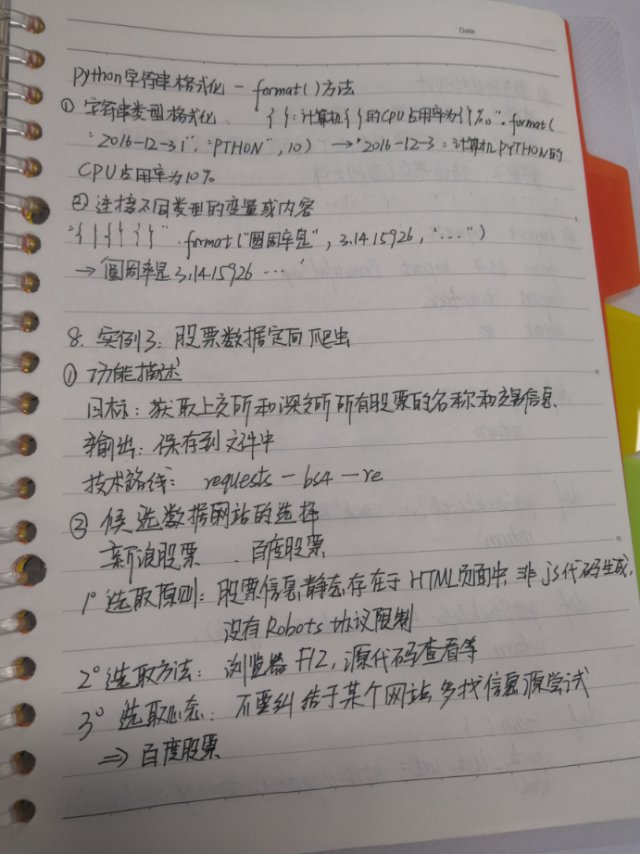 Date
python字符串格式化 - format()方法
① 字符串类型格式化. { }:计算机{ }的CPU占用率为{ }%。".format(
"2016-12-31", "PTHON", 10) → "2016-12-3:计算机PYTHON的
CPU占用率为10%
② 连接不同类型的变量或内容
"{ }{ }{ }".format("圆周率是", 3.1415926, "...")
→ 圆周率是3.1415926 ...'
8. 实例3:股票数据定向爬虫
① 功能描述
目标:获取上交所和深交所所有股票的名称和交易信息.
输出:保存到文件中
技术路线: requests - bs4 - re
② 候选数据网站的选择
新浪股票 . 百度股票
1° 选取原则:股票信息静态存在于HTML页面中,非js代码生成,
没有Robots协议限制
2° 选取方法: 浏览器F12,源代码查看等
3° 选取心态: 不要纠结于某个网站,多找信息源尝试
⇒ 百度股票